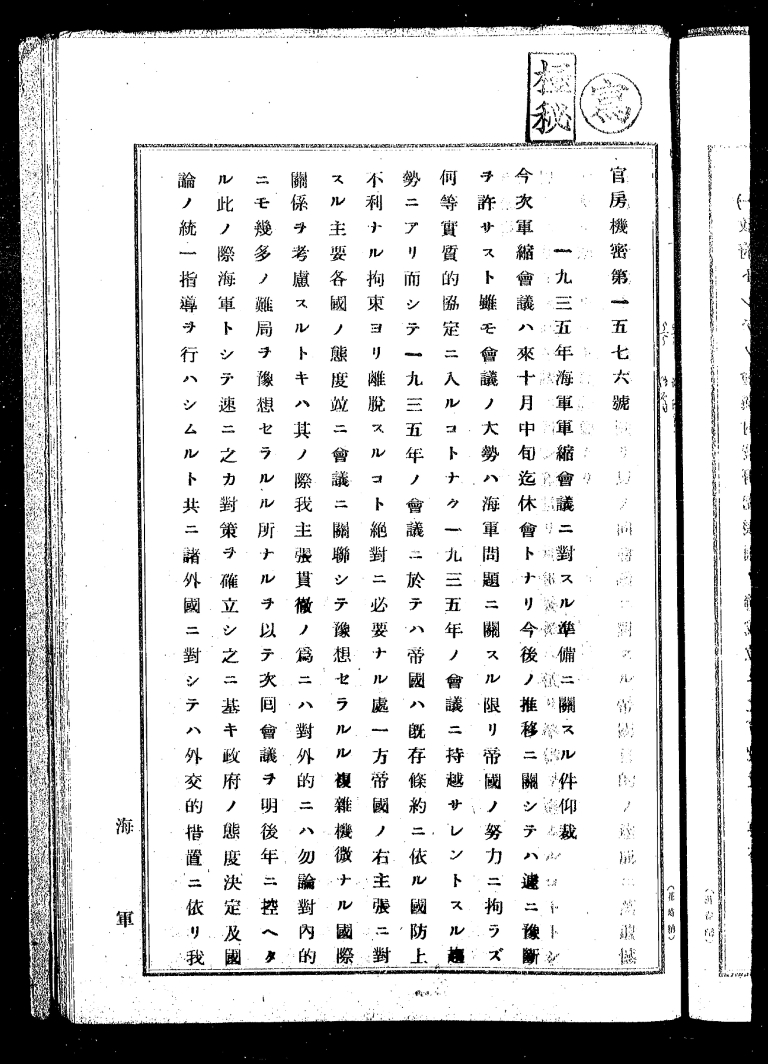 寫
極秘
官房機密第一五七六號
一九三五年海軍軍縮會議ニ對スル準備ニ關スル件仰裁
今次軍縮會議ハ來十月中旬迄休會トナリ今後ノ推移ニ關シテハ遽ニ豫斷
ヲ許サスト雖モ會議ノ大勢ハ海軍問題ニ關スル限リ帝國ノ努力ニ拘ラズ
何等實質的協定ニ入ルコトナク一九三五年ノ會議ニ持越サレントスル趨
勢ニアリ而シテ一九三五年ノ會議ニ於テハ帝國ハ既存條約ニ依ル國防上
不利ナル拘束ヨリ離脫スルコト絕對ニ必要ナル處一方帝國ノ右主張ニ對
スル主要各國ノ態度竝ニ會議ニ關聯シテ豫想セラルル複雜機微ナル國際
關係ヲ考慮スルトキハ其ノ際我主張貫徹ノ爲ニハ對外的ニハ勿論對內的
ニモ幾多ノ難局ヲ豫想セラルル所ナルヲ以テ次回會議ヲ明後年ニ控ヘタ
ル此ノ際海軍トシテ速ニ之カ對策ヲ確立シ之ニ基キ政府ノ態度決定及國
論ノ統一指導ヲ行ハシムルト共ニ諸外國ニ對シテハ外交的措置ニ依リ我
海軍